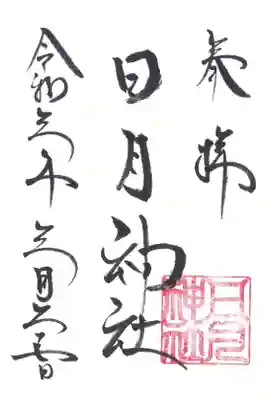 奉拝
日月神社
令和六年 六月 日
日月
神社